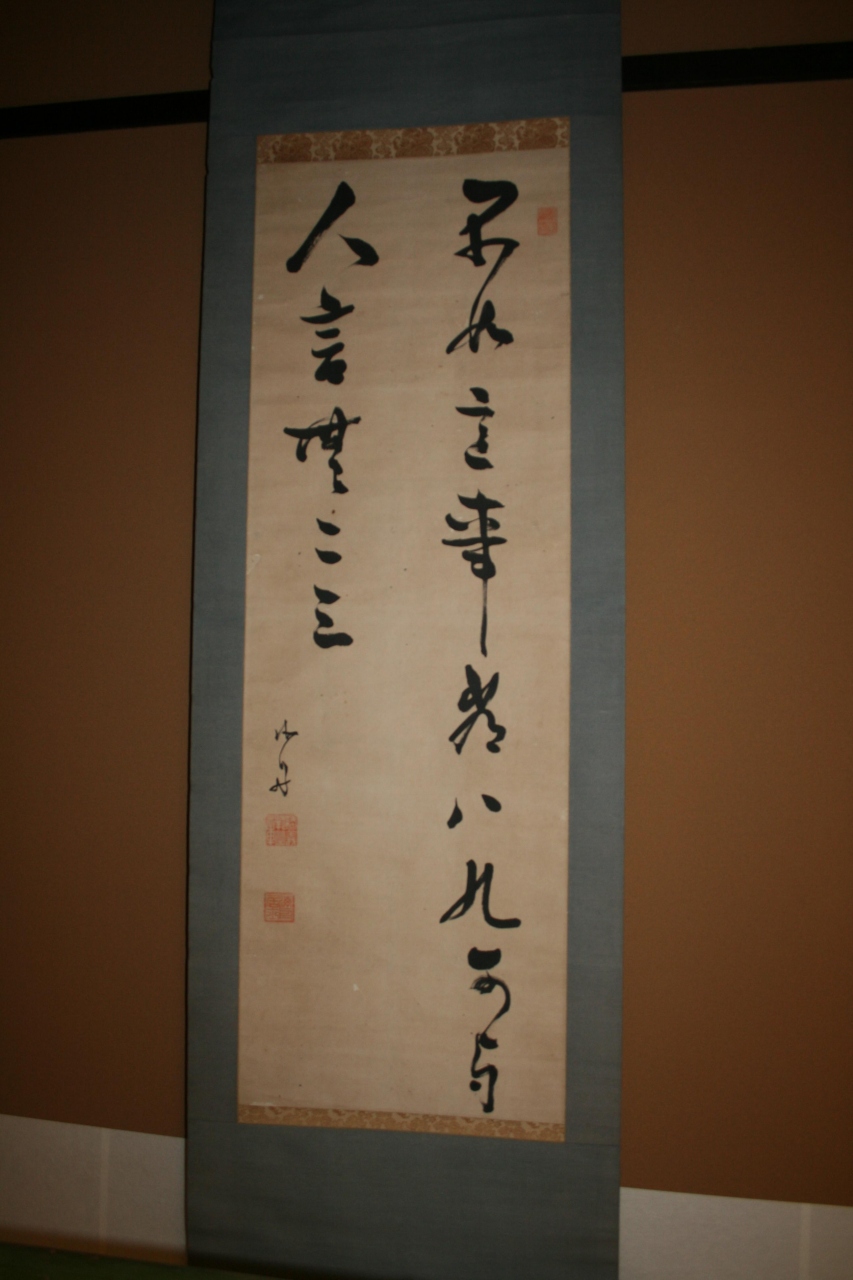 不如意事常八九可与
人言無二三